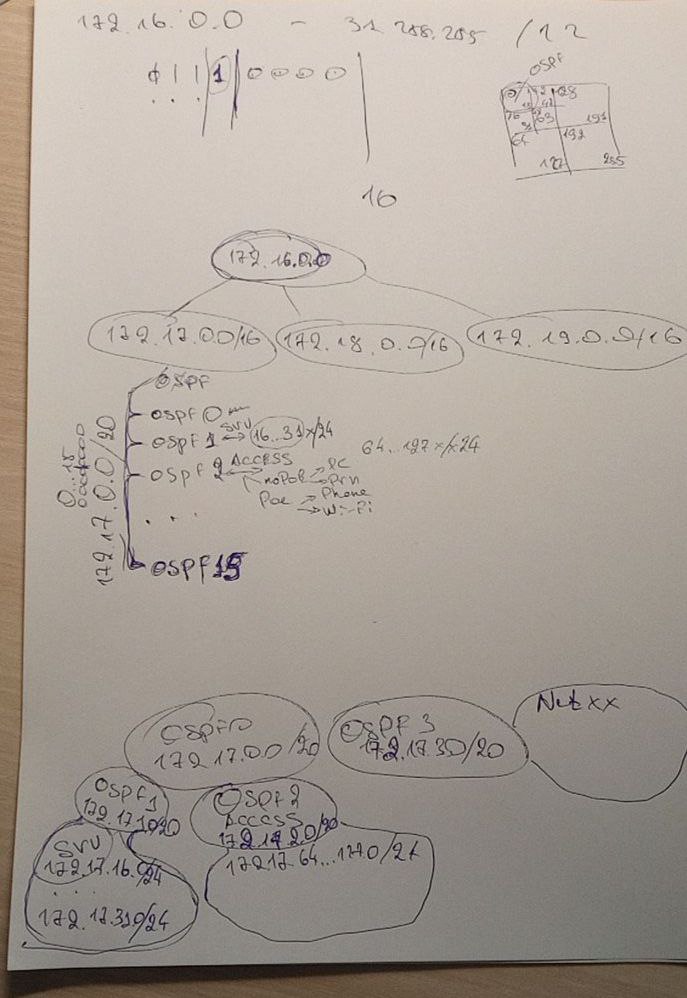 172.16.0.0 - 31.255.255 /12
1 | | 1 0 0 0 0
OSPF
128
63
64
192
191
127
255
16
172.16.0.0
172.17.0.0/16
172.18.0.0/16
172.19.0.0/16
OSPF
OSPF 0
OSPF 1 SRV 16..31x/24
64..127x/x24
OSPF 2 ACCESS
noPoE PC
Prn
PoE Phone
Wi-Fi
. . .
OSPF 15
0...15
172.17.0.0/20
OSPF0
172.17.0.0/20
OSPF 3
172.17.3.0/20
Netxx
OSPF1
172.17.1.0/20
OSPF2
ACCESS
172.17.2.0/20
SRV
172.17.16.0/24
. . . .
172.17.31.0/24
172.17.64...127.0/24